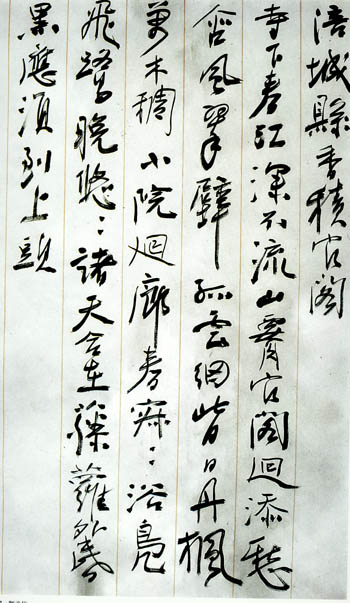 涪城縣香積官閣
寺下春江深不流山腰官閣迴添愁
含風翠壁孤雲細背日丹楓
萬木稠小院迴廊春寂々浴鳧
飛鷺晚悠々諸天合在藤蘿外昏
黑應須到上頭